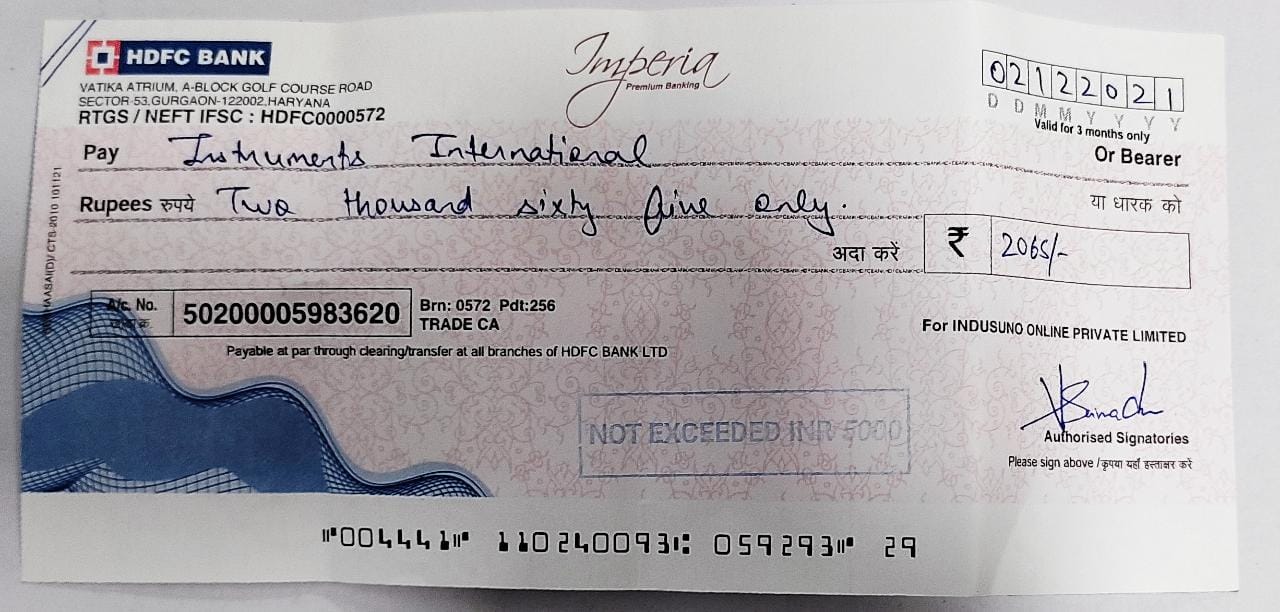 HDFC BANK
VATIKA ATRIUM, A-BLOCK GOLF COURSE ROAD
SECTOR-53,GURGAON-122002,HARYANA
RTGS / NEFT IFSC : HDFC0000572
Imperia
Premium Banking
02122021
D D M M Y Y Y Y
Valid for 3 months only
Pay Instruments International
Or Bearer
Rupees रुपये Two thousand sixty five only.
या धारक को
अदा करें
₹ 2065/-
CTS-2010 101121
A/c. No. 50200005983620
Brn: 0572 Pdt:256
TRADE CA
Payable at par through clearing/transfer at all branches of HDFC BANK LTD
For INDUSUNO ONLINE PRIVATE LIMITED
NOT EXCEEDED INR 5000
Authorised Signatories
Please sign above / कृपया यहाँ हस्ताक्षर करें
⑈004441⑈ 110240093⑆ 059293⑈ 29